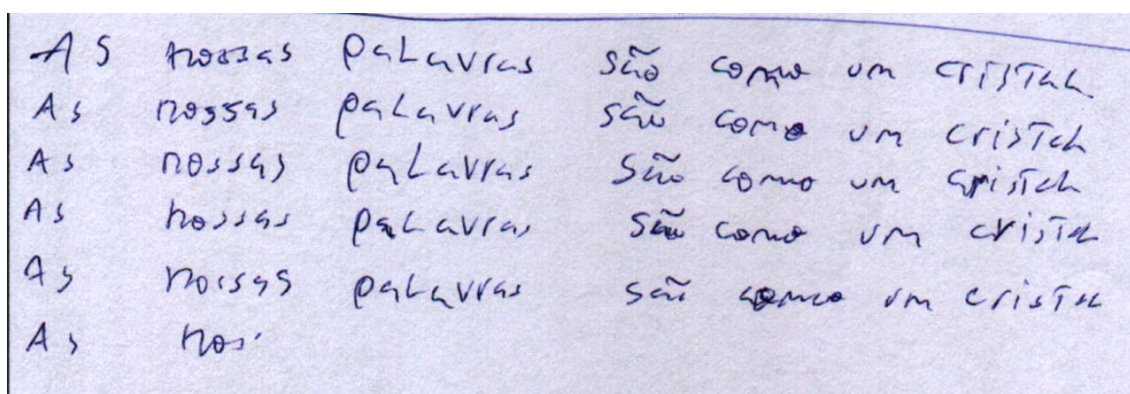 As nossas palavras são como um cristal
As nossas palavras são como um cristal
As nossas palavras são como um cristal
As nossas palavras são como um cristal
As nossas palavras são como um cristal
As nos